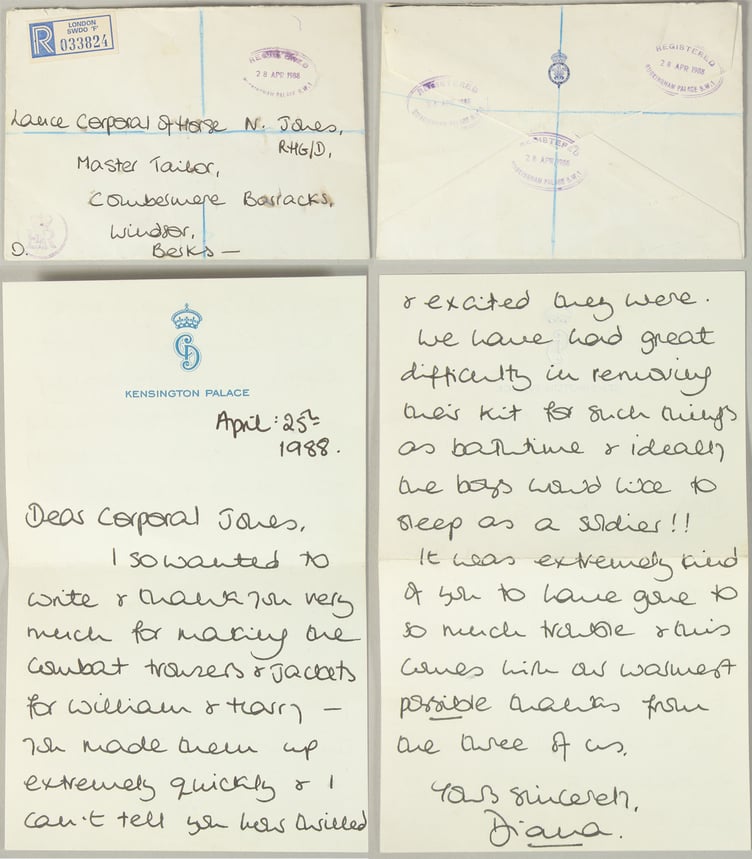 LONDON
SWDO 'F'
R 033824
REGISTERED
28 APR 1988
BUCKINGHAM PALACE S.W.1
Lance Corporal of Horse N. Jones,
RHG/D,
Master Tailor,
Combermere Barracks,
Windsor,
Berks —
D.
REGISTERED
28 APR 1988
BUCKINGHAM PALACE S.W.1
REGISTERED
BUCKINGHAM PALACE S.W.1
REGISTERED
28 APR 1988
BUCKINGHAM PALACE S.W.1
KENSINGTON PALACE
April: 25th
1988.
Dear Corporal Jones,
I so wanted to
write & thank you very
much for making the
combat trousers & jackets
for William & Harry —
you made them up
extremely quickly & I
can't tell you how thrilled
& excited they were.
We have had great
difficulty in removing
their kit for such things
as bathtime & ideally
the boys would like to
sleep as a soldier!!
It was extremely kind
of you to have gone to
so much trouble & this
comes with our warmest
possible thanks from
the three of us,
Yours sincerely,
Diana.